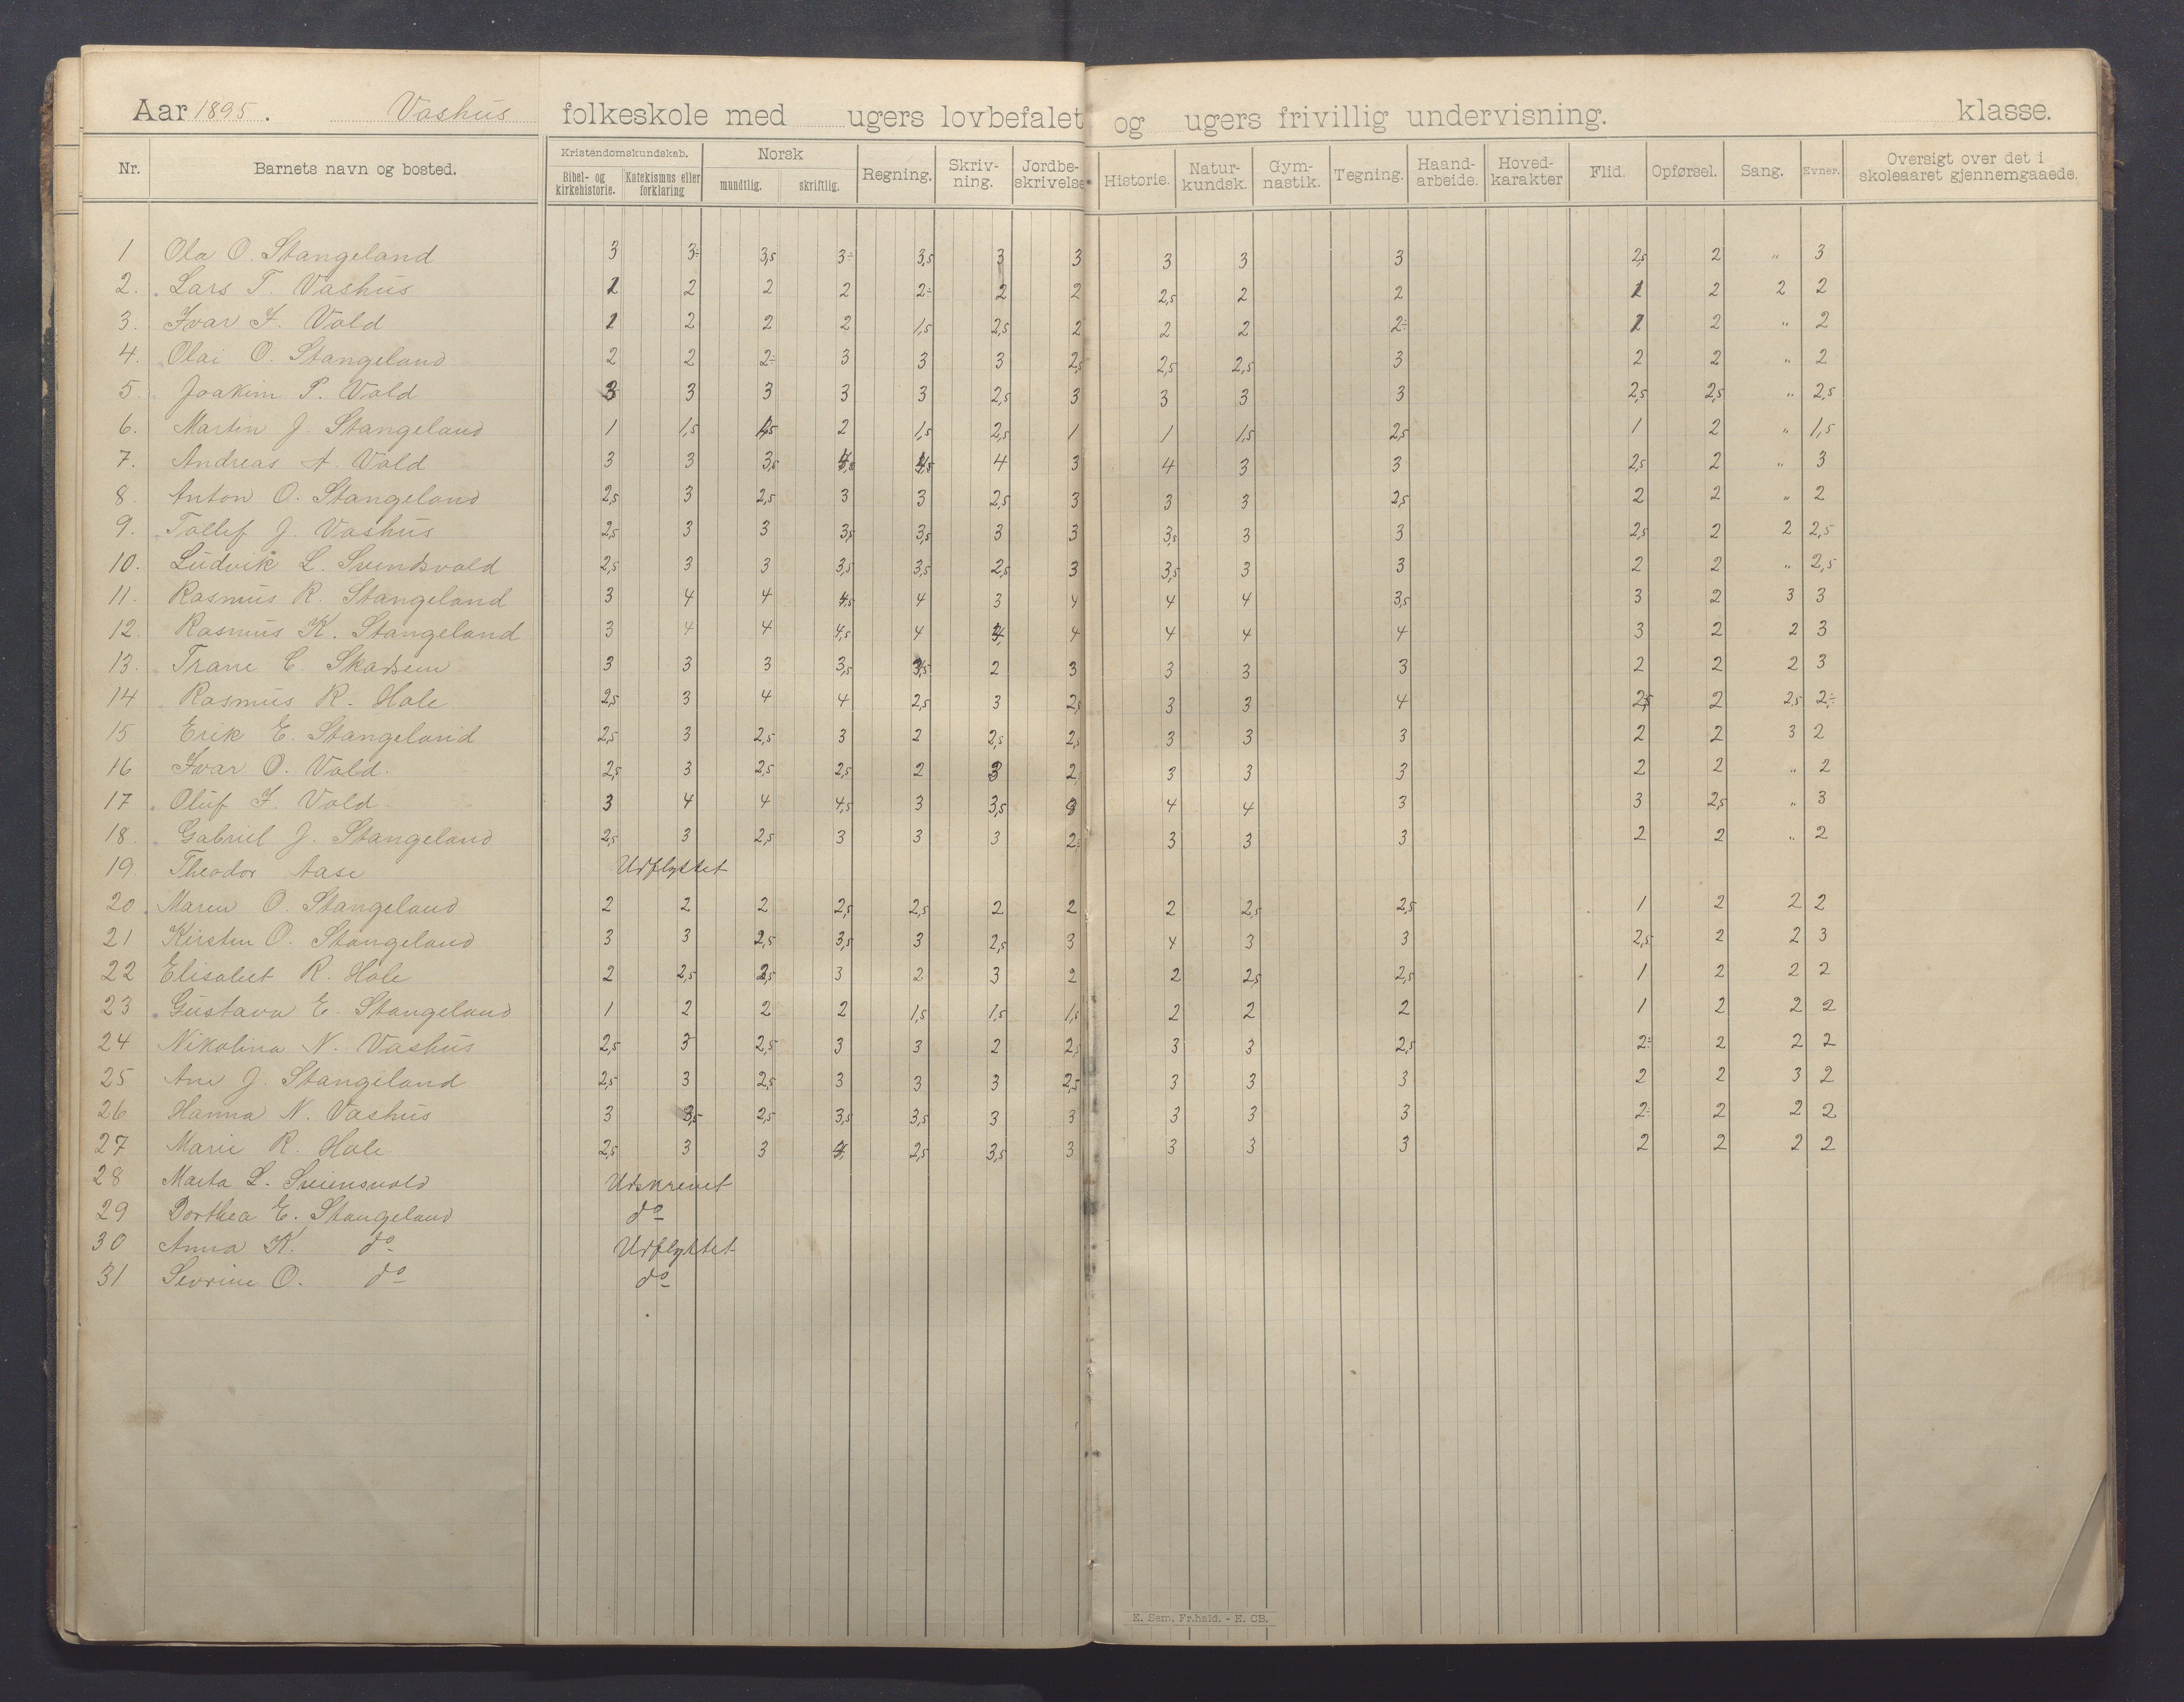 Aar 1895. Vashus folkeskole med ugers lovbefalet og ugers frivillig undervisning. klasse.
Nr. Barnets navn og bosted. Kristendomskundskab. Bibel- og kirkehistorie. Katekismus eller forklaring Norsk mundtlig. skriftlig. Regning. Skriv-ning. Jordbe-skrivelse Historie. Natur-kundsk. Gym-nastik. Tegning. Haand-arbeide. Hoved-karakter Flid. Opførsel. Sang. Evner. Oversigt over det i skoleaaret gjennemgaaede.
1 Ola O. Stangeland 3 3÷ 3,5 3÷ 3,5 3 3 3 3 3 2,5 2 „ 3
2. Lars T. Vashus 1 2 2 2 2÷ 2 2 2,5 2 2 1 2 2 2
3. Ivar I. Vold 1 2 2 2 1,5 2,5 2 2 2 2÷ 1 2 „ 2
4. Olai O. Stangeland 2 2 2÷ 3 3 3 2,5 2,5 2,5 3 2 2 „ 2
5. Joakim P. Vold 3 3 3 3 3 2,5 3 3 3 3 2,5 2,5 „ 2,5
6. Martin J. Stangeland 1 1,5 1,5 2 1,5 2,5 1 1 1,5 2,5 1 2 „ 1,5
7. Andreas A. Vold 3 3 3,5 4,5 4,5 4 3 4 3 3 2,5 2 „ 3
8. Anton O. Stangeland 2,5 3 2,5 3 3 2,5 3 3 3 2,5 2 2 „ 2
9. Tollef J. Vashus 2,5 3 3 3,5 3,5 3 3 3,5 3 3 2,5 2 2 2,5
10. Ludvik L. Svendsvold 2,5 3 3 3,5 3,5 2,5 3 3,5 3 3 2 2 „ 2,5
11. Rasmus R. Stangeland 3 4 4 4,5 4 3 4 4 4 3,5 3 2 3 3
12. Rasmus K. Stangeland 3 4 4 4,5 4 4 4 4 4 3 2 2 3
13. Trane C. Skadsem 3 3 3 3,5 3,5 2 3 3 3 3 2 2 2 3
14 Rasmus R. Hole 2,5 3 4 4 2,5 3 2,5 3 3 4 2,5 2 2,5 2÷
15 Erik E. Stangeland 2,5 3 2,5 3 2 2,5 2,5 3 3 3 2 2 3 2
16 Ivar O. Vold. 2,5 3 2,5 2,5 2 3 2, 3 3 3 2 2 „ 2
17 Oluf I. Vold 3 4 4 4,5 3 3,5 3 4 4 3 3 2,5 „ 3
18. Gabriel J. Stangeland 2,5 3 2,5 3 3 3 2,5 3 3 3 2 2 „ 2
19. Theodor Aase Udflyttet
20 Maren O. Stangeland 2 2 2 2,5 2,5 2 2 2 2,5 2,5 1 2 2 2
21 Kirsten O. Stangeland 3 3 2,5 3,5 3 2,5 3 4 3 3 2,5 2 2 3
22 Elisabet R. Hole 2 2,5 2,5 3 2 3 2 2 2,5 2,5 1 2 2 2
23 Gustava E. Stangeland 1 2 2 2 1,5 1,5 1,5 2 2 2 1 2 2 2
24 Nikolina N. Vashus 2,5 3 2,5 3 3 2 2,5 3 3 2,5 2÷ 2 2 2
25 Ane J. Stangeland 2,5 3 2,5 3 3 3 2,5 3 3 3 2 2 3 2
26 Hanna N. Vashus 3 3,5 2,5 3,5 3,5 3 3 3 3 3 2÷ 2 2 2
27 Marie R. Hole 2,5 3 3 4 2,5 3,5 3 3 3 3 2 2 2 2
28 Marta L. Sveinsvold Udskrevet
29 Dorthea E. Stangeland do
30 Anna K. do Udflyttet
31 Sevrine O. do do
E. Sem, Fr.hald. - E. CB.